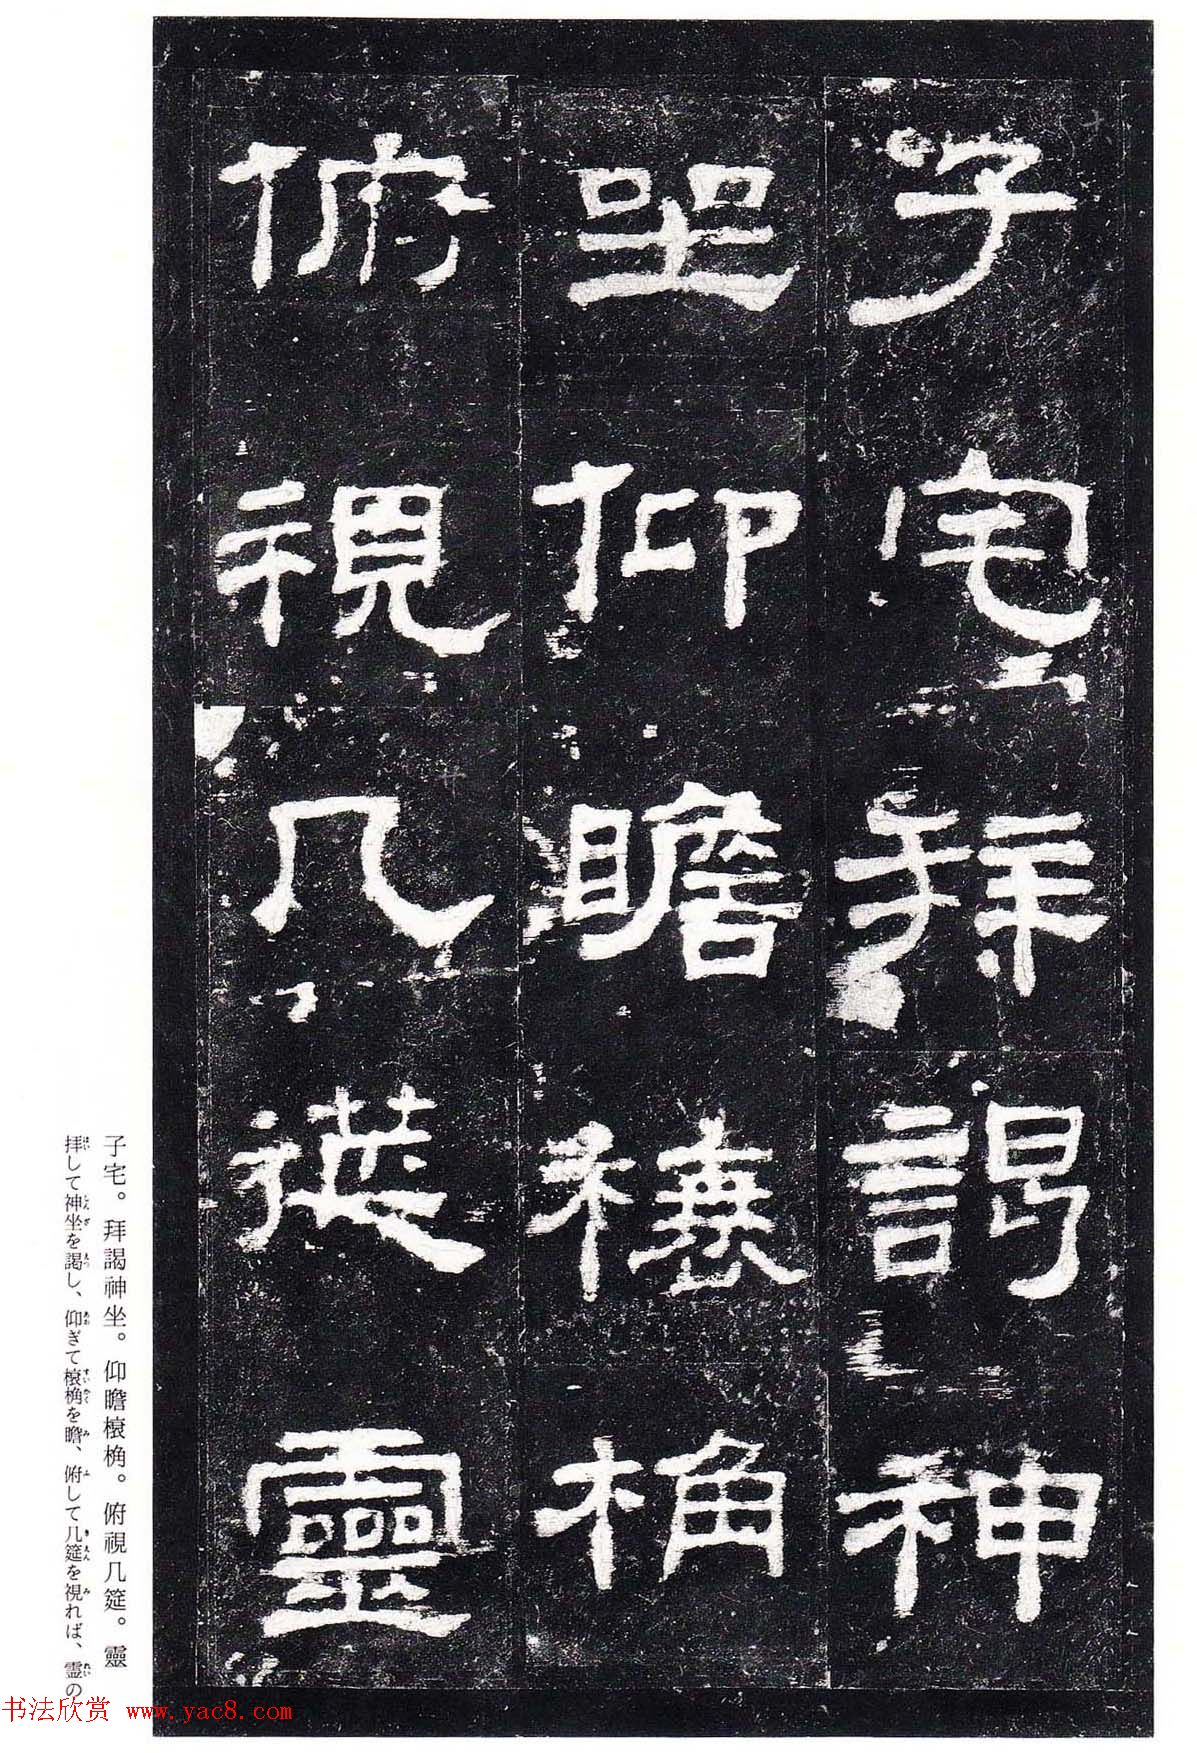 子宅拜謁神
坐仰瞻榱桷
俯視几筵靈
子宅。拜謁神坐。仰瞻榱桷。俯視几筵。靈
拝して神坐を謁し、仰ぎて榱桷を瞻、俯して几筵を視れば、霊の
书法欣赏 www.yac8.com